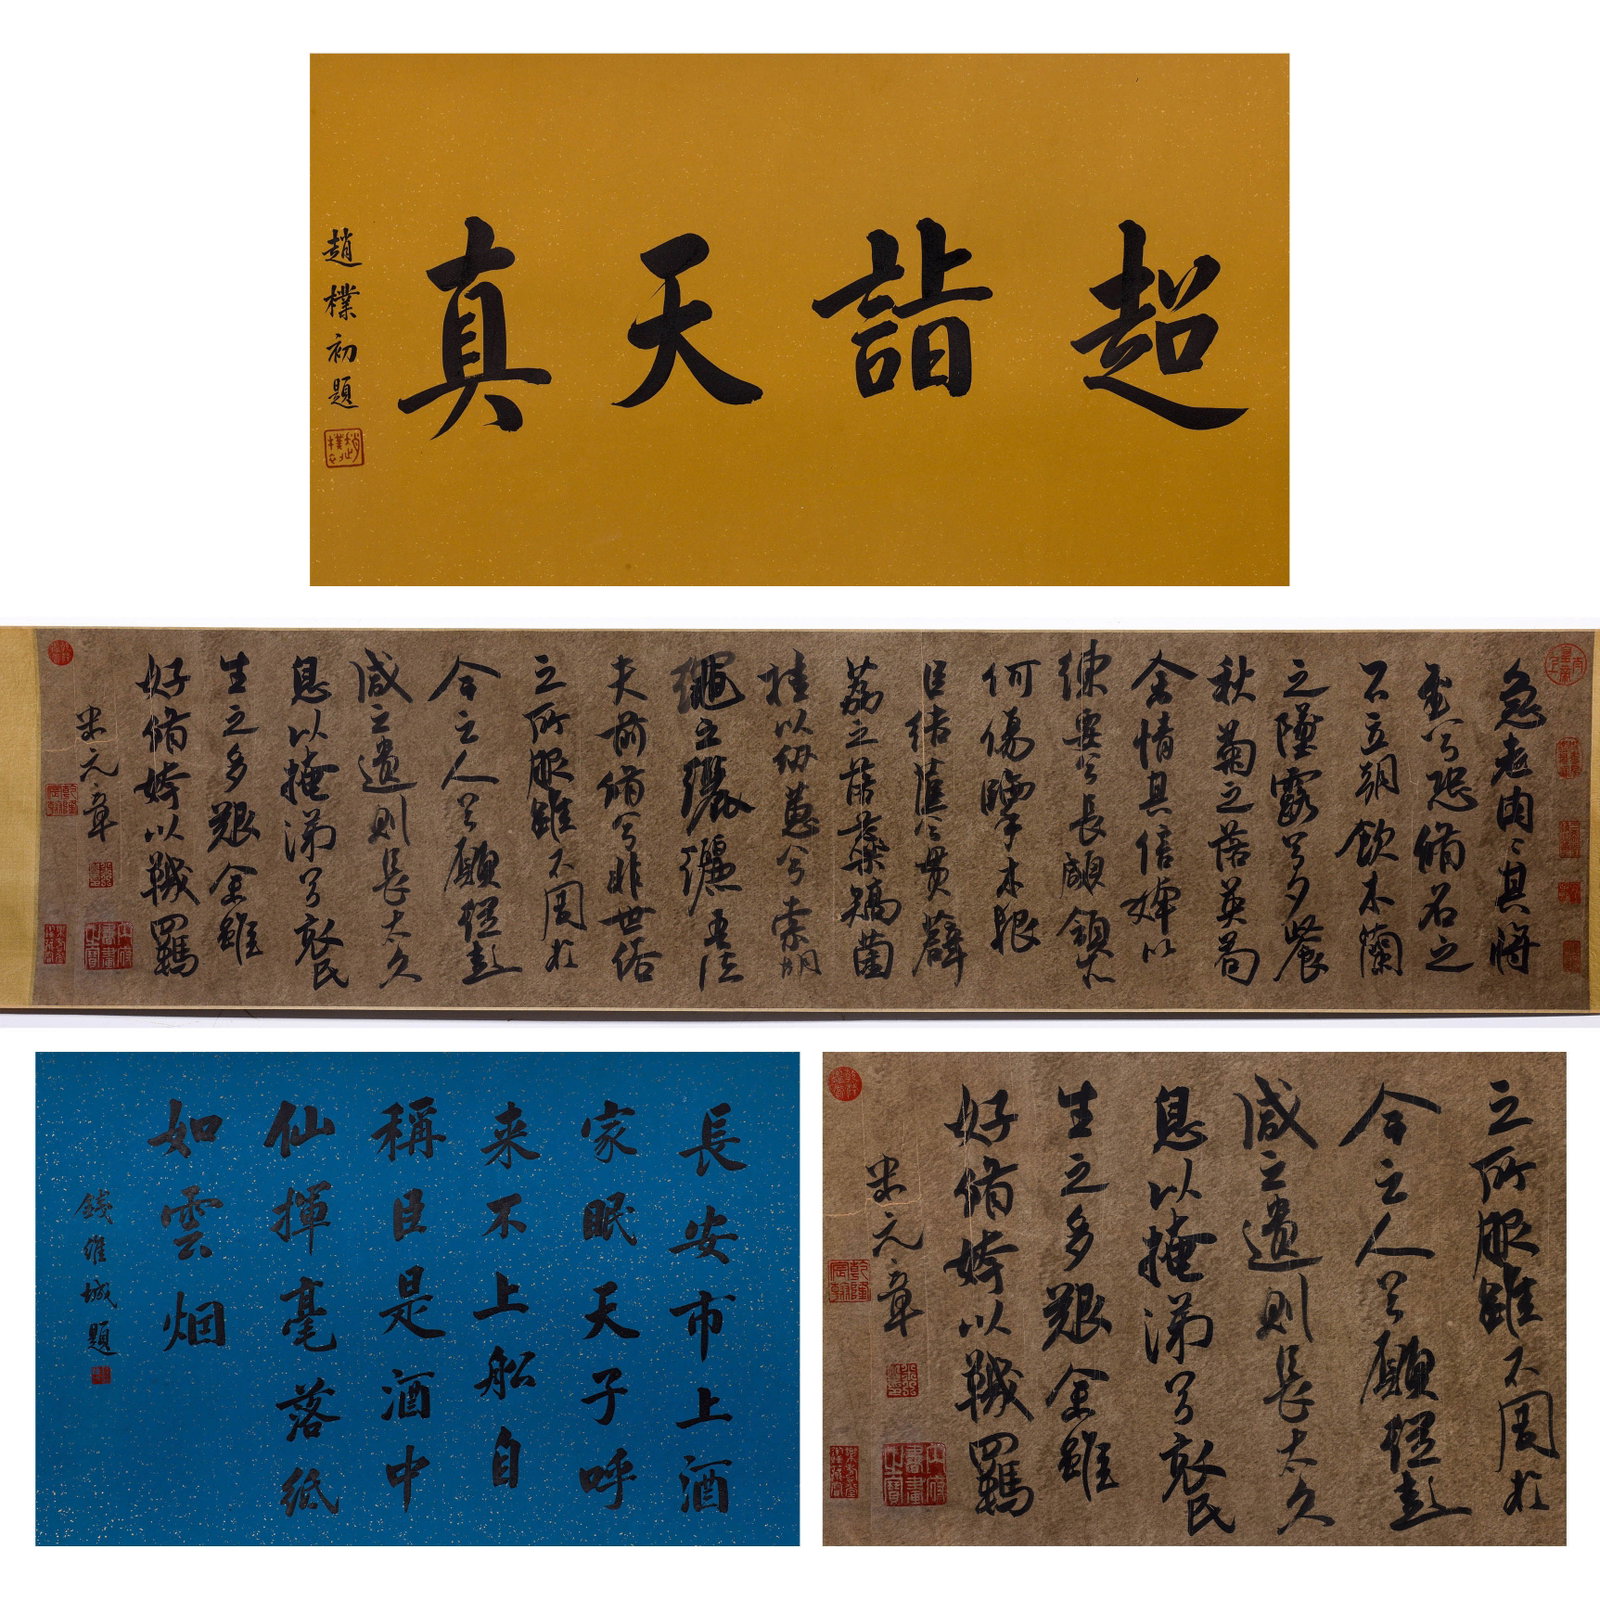 超詣天真
趙樸初題
急老冉冉其將
至兮恐脩名之
不立朝飲木蘭
之墜露兮夕餐
秋菊之落英苟
余情其信姱以
練要兮長顑頷亦
何傷擥木根
以結茝兮貫薜
荔之落蘂矯菌
桂以紉蕙兮索胡
繩之纚纚吾法
夫前脩兮非世俗
之所服雖不周於
今之人兮願依彭
咸之遺則長太久
息以掩涕兮哀民
生之多艱余雖
好脩姱以鞿羈
米元章
長安市上酒
家眠天子呼
来不上船自
稱臣是酒中
仙揮毫落紙
如雲烟
錢維城題
之所服雖不周於
今之人兮願依彭
咸之遺則長太久
息以掩涕兮哀民
生之多艱余雖
好脩姱以鞿羈
米元章